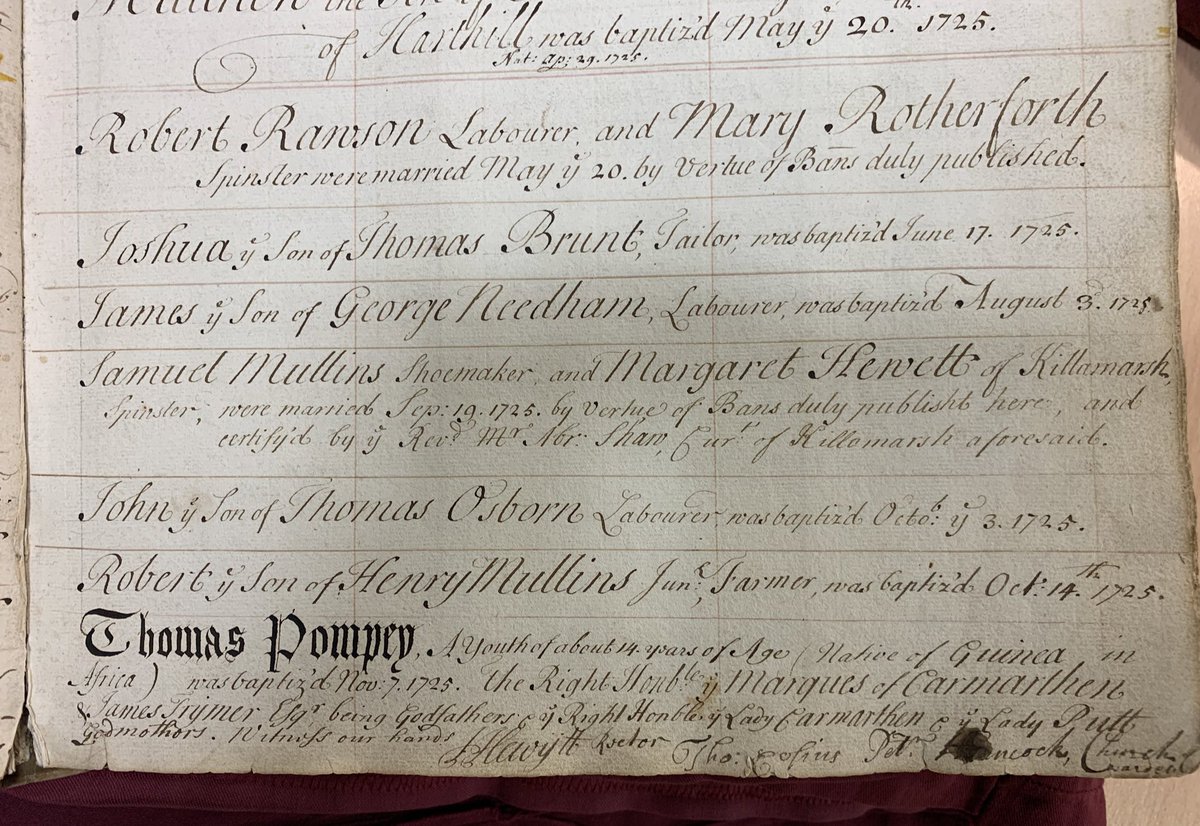 of Harthill was baptiz'd May ye 20th. 1725.
Nat: Ap: 29. 1725.
Robert Rawson Labourer, and Mary Rotherforth
Spinster were married May ye 20. by Vertue of Bans duly published.
Joshua ye Son of Thomas Brunt, Tailor, was baptiz'd June 17. 1725.
James ye Son of George Needham, Labourer, was baptiz'd August 3d. 1725.
Samuel Mullins Shoemaker, and Margaret Hewett of Killamarsh,
Spinster, were married Sep: 19. 1725. by Vertue of Bans duly publisht here, and
certify'd by ye Revd. Mr. Abr: Shaw, Curt. of Killomarsh aforesaid.
John ye Son of Thomas Osborn Labourer, was baptiz'd Octob: ye 3. 1725.
Robert ye Son of Henry Mullins Junr, Farmer, was baptiz'd Oct: 14th. 1725.
Thomas Pompey, A Youth of about 14 years of Age Native of Guinea in
Africa) was baptiz'd Nov: 7. 1725. the Right Honble ye Marques of Carmarthen
& James Trymer Esqr being Godfathers & ye Right Honble ye Lady Carmarthen & ye Lady Putt
Godmothers. Witness our hands
Hewytt Rector Tho: Pet: Hancock, Church
wardens